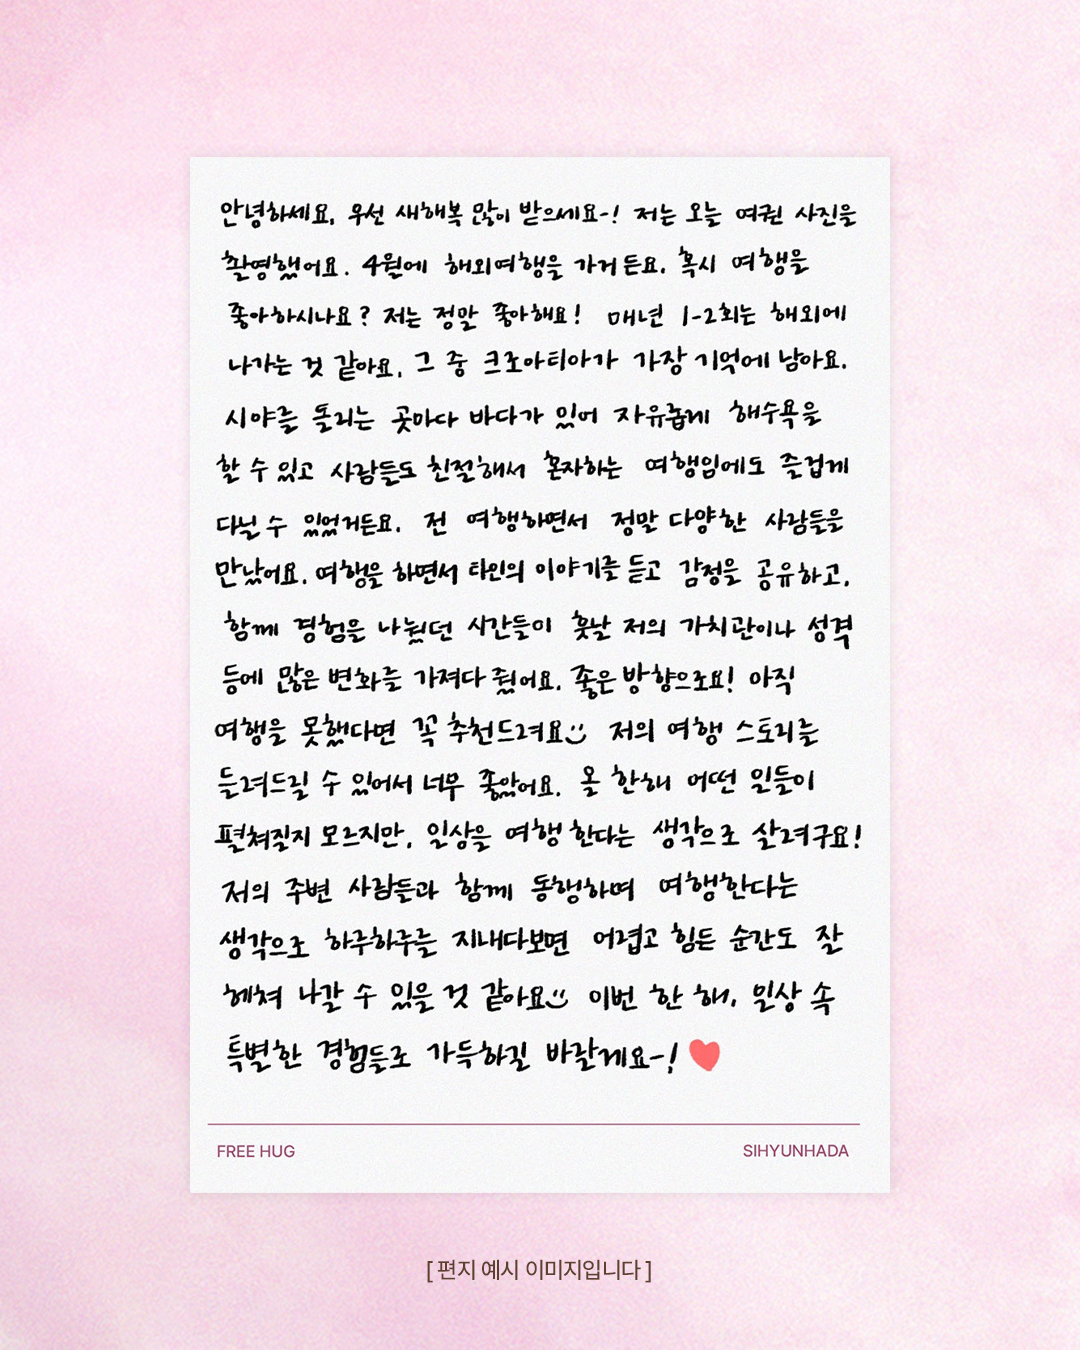 안녕하세요, 우선 새해복 많이 받으세요-! 저는 오늘 여권 사진을
촬영했어요. 4월에 해외여행을 가거든요. 혹시 여행을
좋아하시나요? 저는 정말 좋아해요! 매년 1-2회는 해외에
나가는 것 같아요. 그 중 크로아티아가 가장 기억에 남아요.
시야를 돌리는 곳마다 바다가 있어 자유롭게 해수욕을
할 수 있고 사람들도 친절해서 혼자하는 여행임에도 즐겁게
다닐 수 있었거든요. 전 여행하면서 정말 다양한 사람들을
만났어요. 여행을 하면서 타인의 이야기를 듣고 감정을 공유하고,
함께 경험을 나눴던 시간들이 훗날 저의 가치관이나 성격
등에 많은 변화를 가져다 줬어요. 좋은 방향으로요! 아직
여행을 못했다면 꼭 추천드려요 저의 여행 스토리를
들려드릴 수 있어서 너무 좋았어요. 올 한해 어떤 일들이
펼쳐질지 모르지만, 일상을 여행 한다는 생각으로 살려구요!
저의 주변 사람들과 함께 동행하며 여행한다는
생각으로 하루하루를 지내다보면 어렵고 힘든 순간도 잘
헤쳐 나갈 수 있을 것 같아요 이번 한 해, 일상 속
특별한 경험들로 가득하길 바랄게요-!
FREE HUG
SIHYUNHADA
[ 편지 예시 이미지입니다 ]